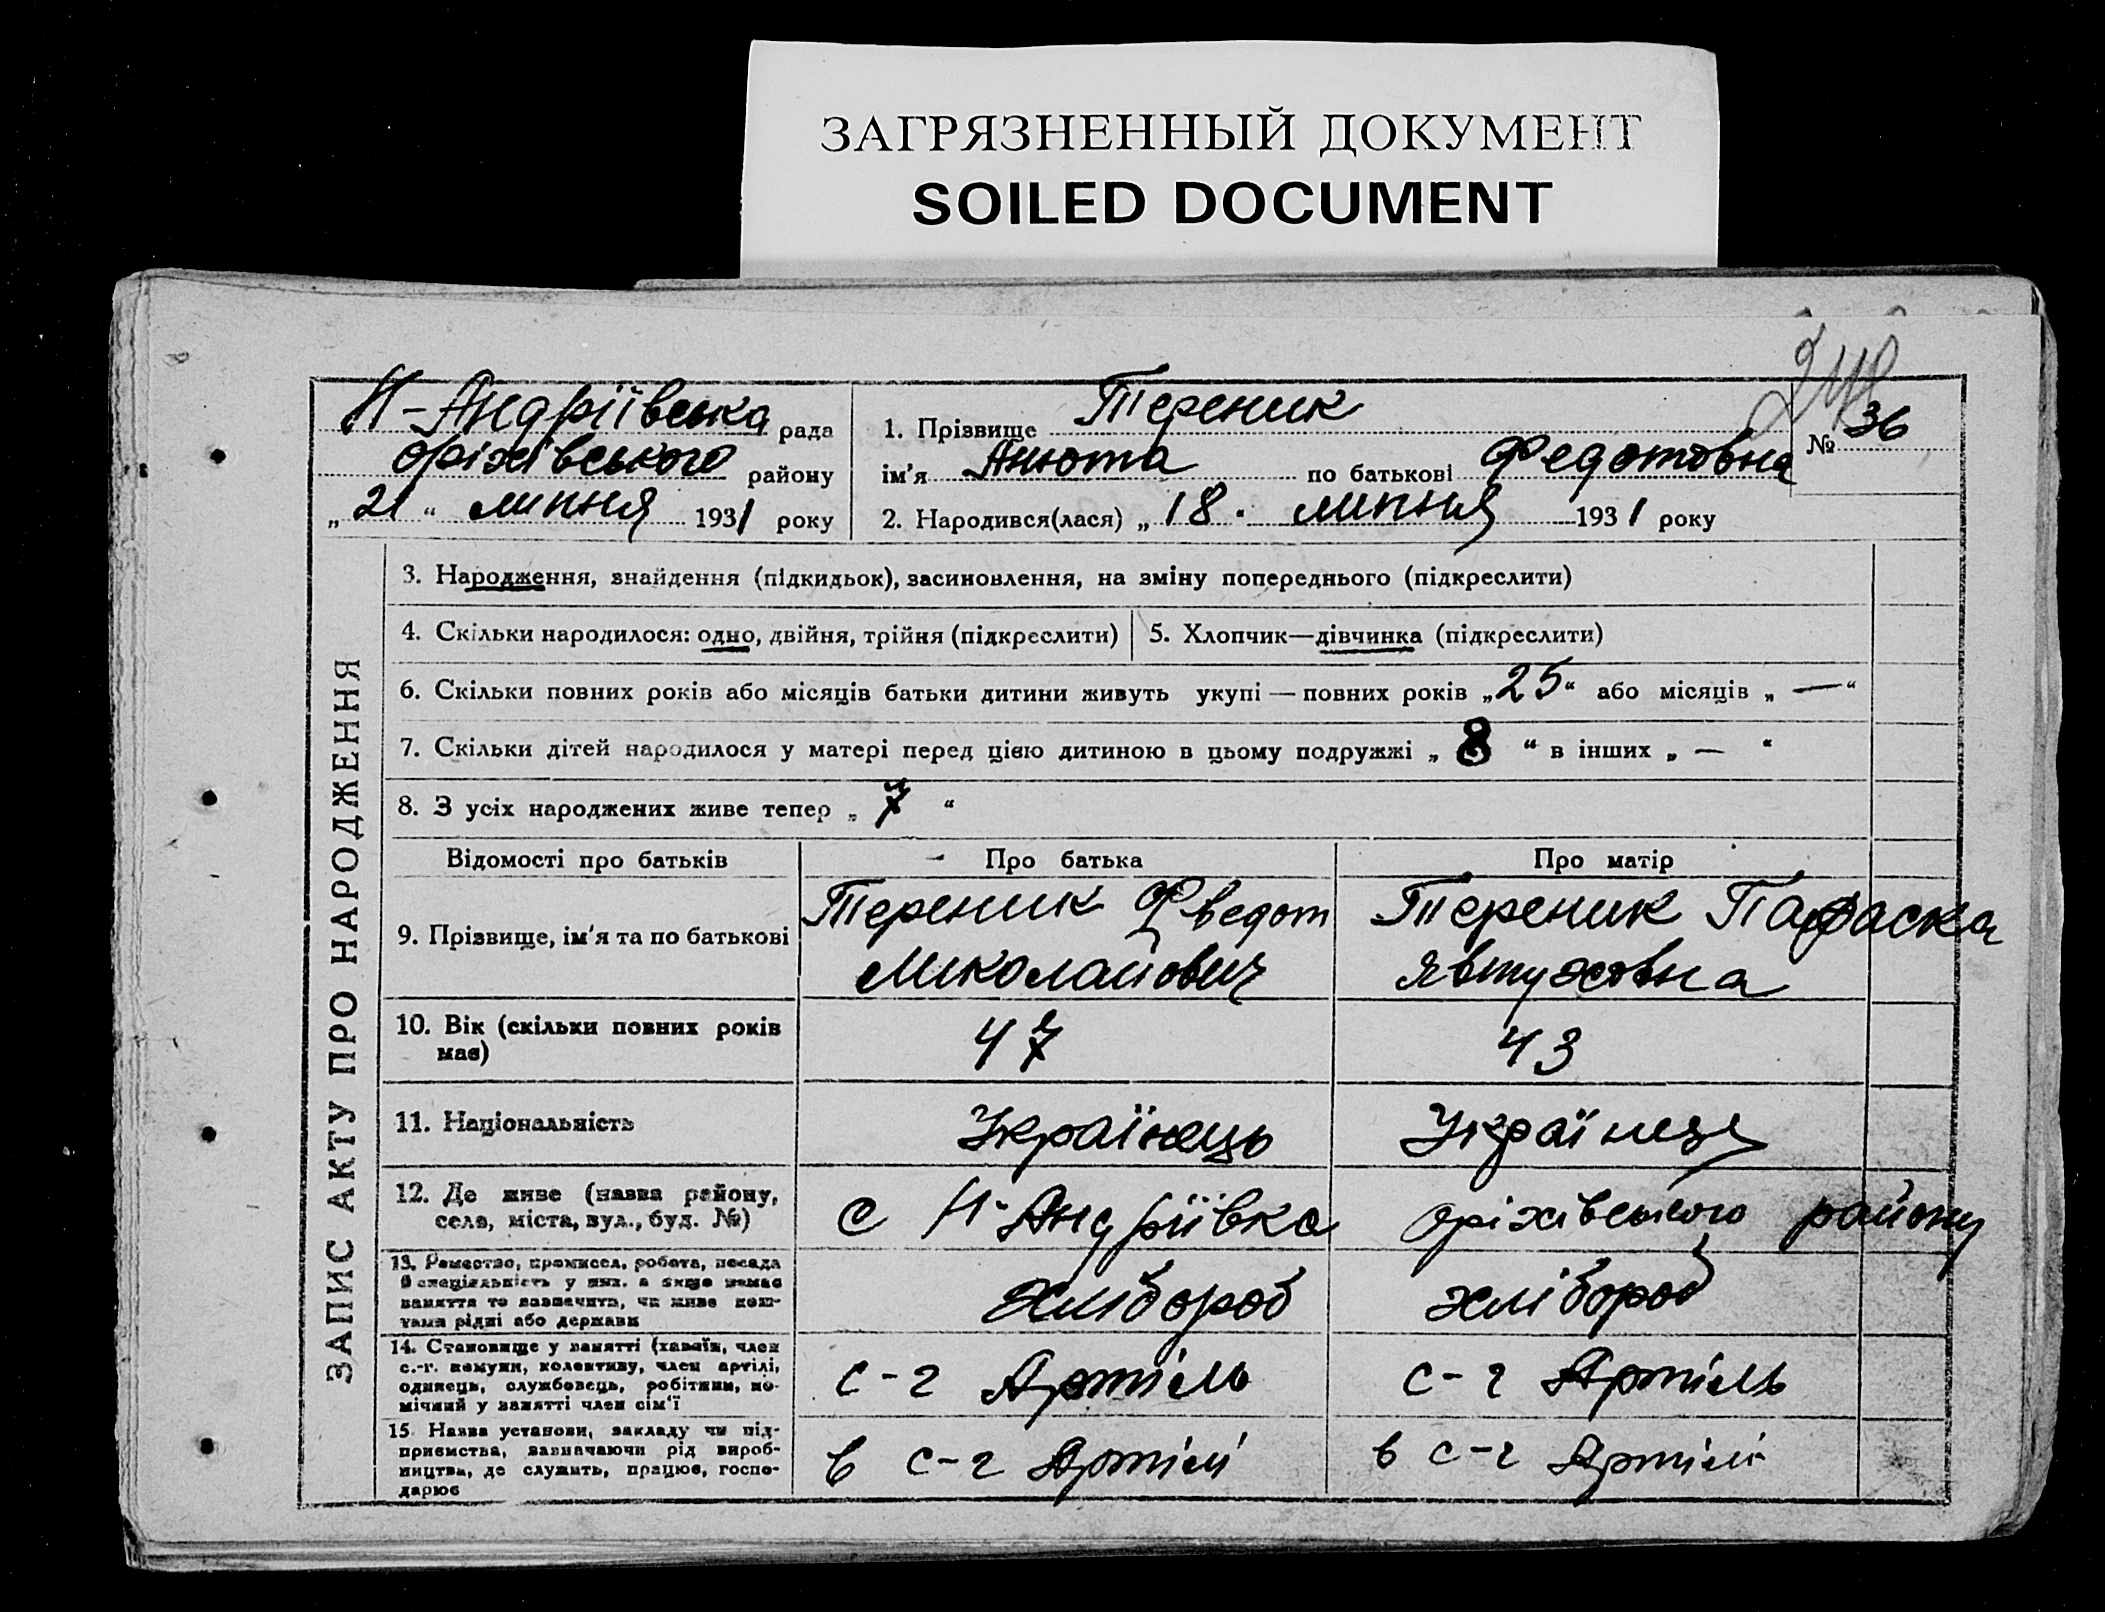 ЗАГРЯЗНЕННЫЙ ДОКУМЕНТ
SOILED DOCUMENT
Н-Андріївська рада
оріхівського району
„21“ липня 1931 року
1. Прізвище Тереник
ім'я Анюта по батькові Федотовна
№ 36
2. Народився(лася) „18. липня 1931 року
ЗАПИС АКТУ ПРО НАРОДЖЕННЯ
3. Народження, знайдення (підкидьок), засиновлення, на зміну попереднього (підкреслити)
4. Скільки народилося: одно, двійня, трійня (підкреслити)
5. Хлопчик—дівчинка (підкреслити)
6. Скільки повних років або місяців батьки дитини живуть укупі — повних років „25“ або місяців „—“
7. Скільки дітей народилося у матері перед цією дитиною в цьому подружжі „8“ в інших „—“
8. З усіх народжених живе тепер „7“
Відомості про батьків
Про батька
Про матір
9. Прізвище, ім'я та по батькові
Тереник Фведот
Миколайович
Тереник Параска
Явтуховна
10. Вік (скільки повних років
має)
47
43
11. Національність
Українець
Українця
12. Де живе (назва району,
села, міста, вул., буд. №)
с Н-Андріївка оріхівського району
13. Ремество, промисел, робота, посада
й спеціяльність у них, а якщо немає
заняття то зазначити, чи живе кош-
тами рідні або держави
хлібороб
хлібороб
14. Становище у занятті (хазяїн, член
с.-г. комуни, колективу, член артілі,
одинець, службовець, робітник, по-
мічний у занятті член сім'ї
с-г Артіль
с-г Артіль
15. Назва установи, закладу чи під-
приємства, зазначаючи рід вироб-
ництва, де служить, працює, госпо-
дарює
в с-г Артілі
в с-г Артілі